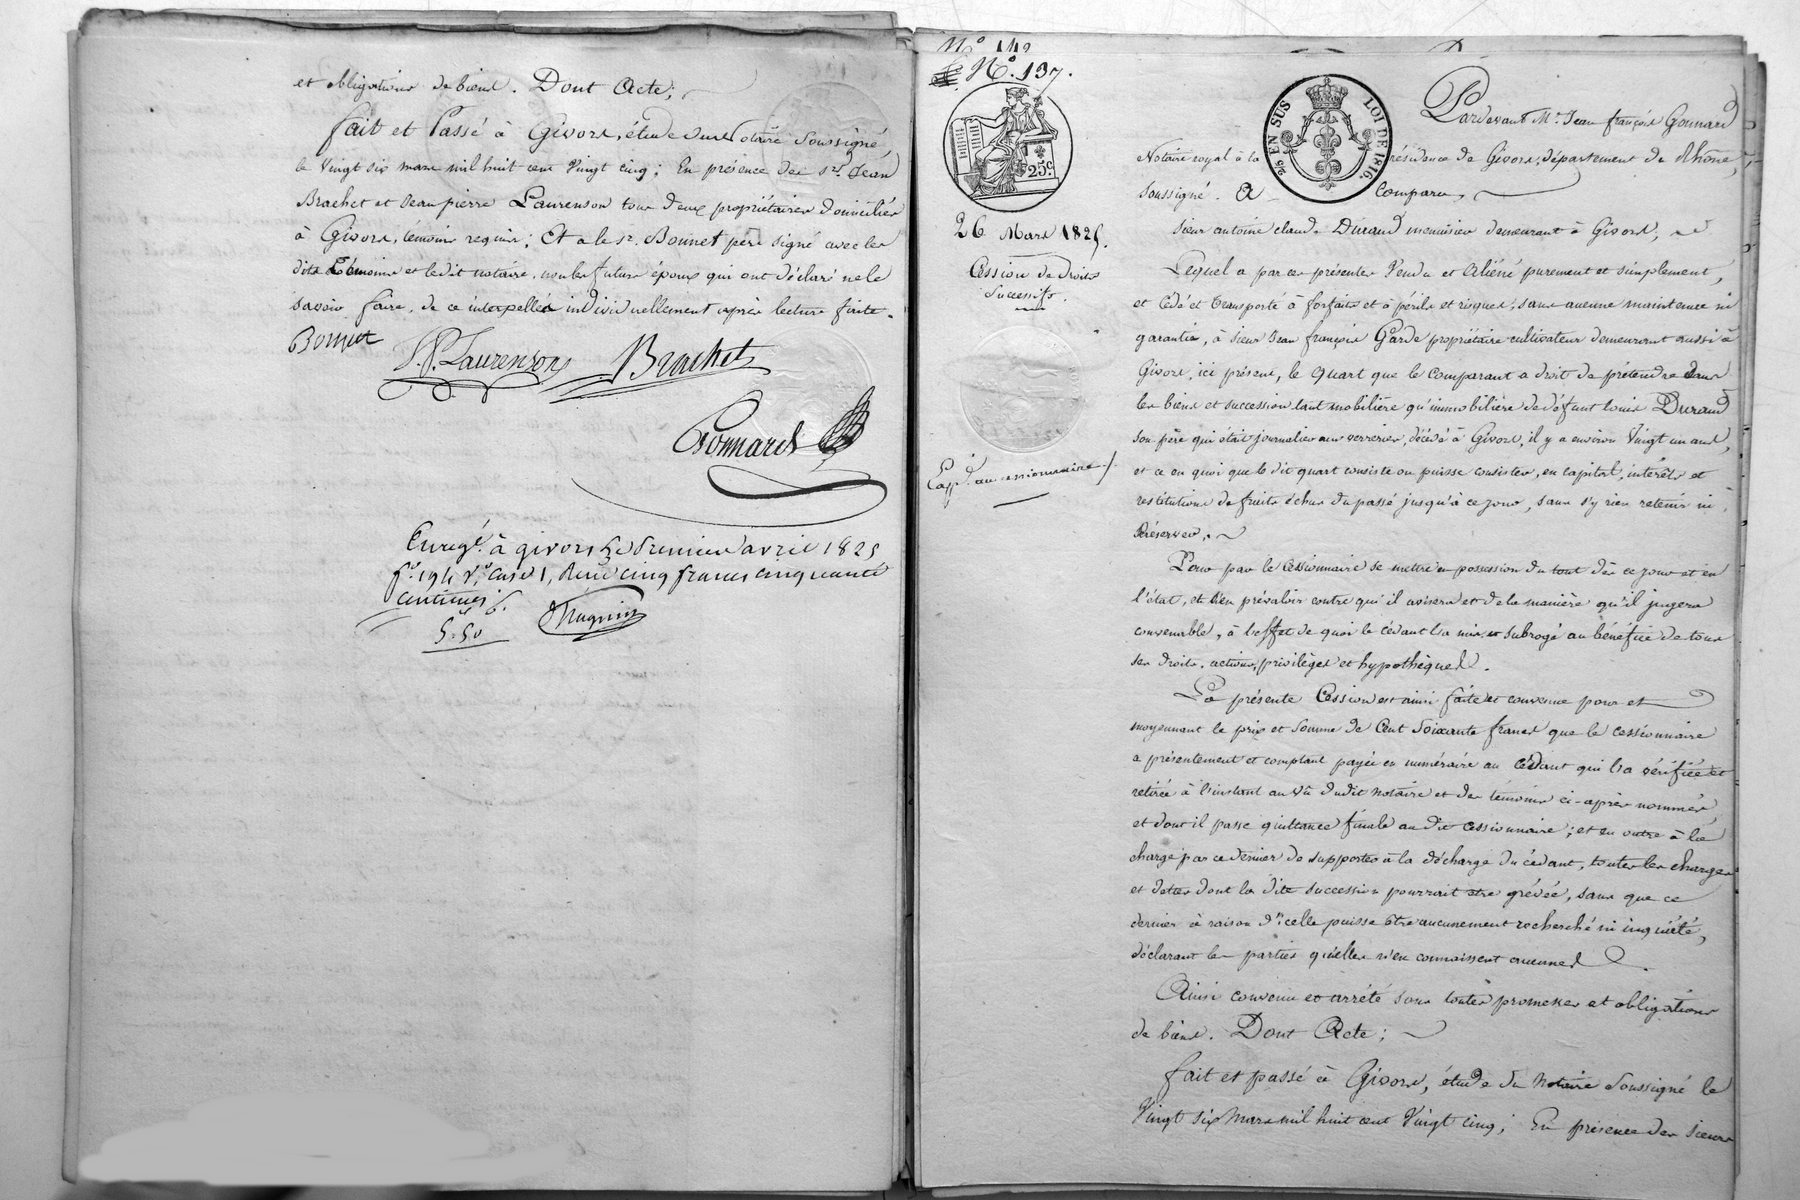 et obligations de biens. Dont Acte;
fait et Passé à Givors, étude du Notaire Soussigné,
le Vingt six mars mil huit cent Vingt cinq; En présence des srs. Jean
Brachet et Jean pierre Laurenson tous deux propriétaires domiciliés
à Givors, témoins requis; Et a le sr. Bonnet père signé avec les
dits témoins et ledit notaire, non les futurs époux qui ont déclaré ne le
savoir faire, de ce interpellés individuellement après lecture faite.
Bonnet
J.P. Laurenson Brachet
Gonnard
Enregé. à givors le Premier avril 1825
fo. 194 Vo. Case 1, Reçu cinq francs cinquante
centimes
5.50
No. 142
No. 137.
25c.
26 Mars 1825.
Cession de droits
Successifs.
Expd. au cessionnaire
25 EN SUS LOI DE 1816.
Pardevant Me. Jean françois Gonnard
Notaire royal à la résidence de Givors, département du Rhône,
soussigné. A Comparu,
sieur antoine claude Durand menuisier demeurant à Givors,
Lequel a par ces présentes Vendu et Aliéné purement et simplement,
et Cédé et transporté à forfait et à périls et risques, sans aucune maintenue ni
garantie, à sieur Jean françois Garde propriétaire cultivateur demeurant aussi à
Givors, ici présent, le quart que le Comparant a droit de prétendre dans
les biens et succession tant mobilière qu'immobilière de défunt louis Durand
son père qui était journalier aux verreries, décédé à Givors, il y a environ Vingt un ans,
et ce en quoi que le dit quart consiste ou puisse consister, en capital, intérêts et
restitutions de fruits échus du passé jusqu'à ce jour, sans s'y rien retenir ni
Réserver.
Pour par le Cessionnaire se mettre en possession du tout dès ce jour et en
l'état, et s'en prévaloir contre qui il avisera et de la manière qu'il jugera
convenable, à l'effet de quoi le cédant l'a mis et subrogé au bénéfice de tous
ses droits, actions, privilèges et hypothèques.
La présente Cession est ainsi faite et convenue pour et
moyennant le prix et somme de Cent Soixante francs que le cessionnaire
a présentement et comptant payée en numéraire au Cédant qui l'a vérifiée et
retirée à l'instant au vû dudit notaire et des témoins ci-après nommés,
et dont il passe quittance finale au dit cessionnaire; et en outre à la
charge par ce dernier de supporter à la décharge du cédant, toutes les charges
et dettes dont la dite succession pourrait être grévée, sans que ce
dernier à raison d'icelle puisse être aucunement recherché ni inquiété,
déclarant les parties qu'elles n'en connaissent aucunes.
Ainsi convenu et arrêté sous toutes promesses et obligations
de biens. Dont Acte;
fait et passé à Givors, étude du Notaire Soussigné le
Vingt six Mars mil huit cent Vingt cinq; En présence des sieurs